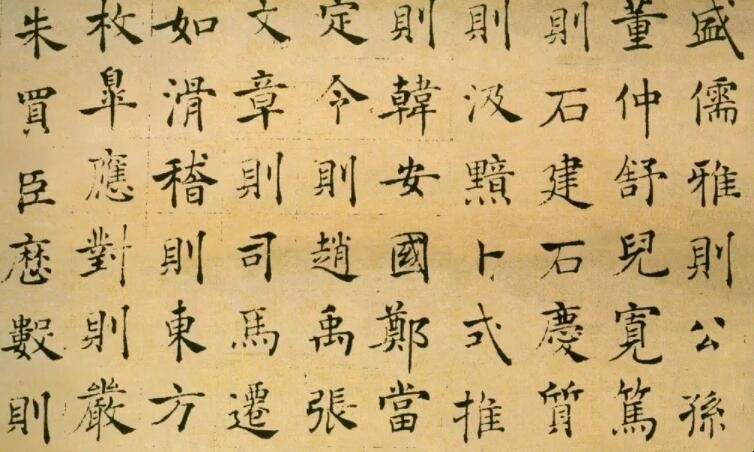 盛儒雅則公孫
董仲舒兒寬篤
則石建石慶質
則汲黯卜式推
則韓安國鄭當
定令則趙禹張
文章則司馬遷
如滑稽則東方
枚皐應對則嚴
朱買臣歷數則